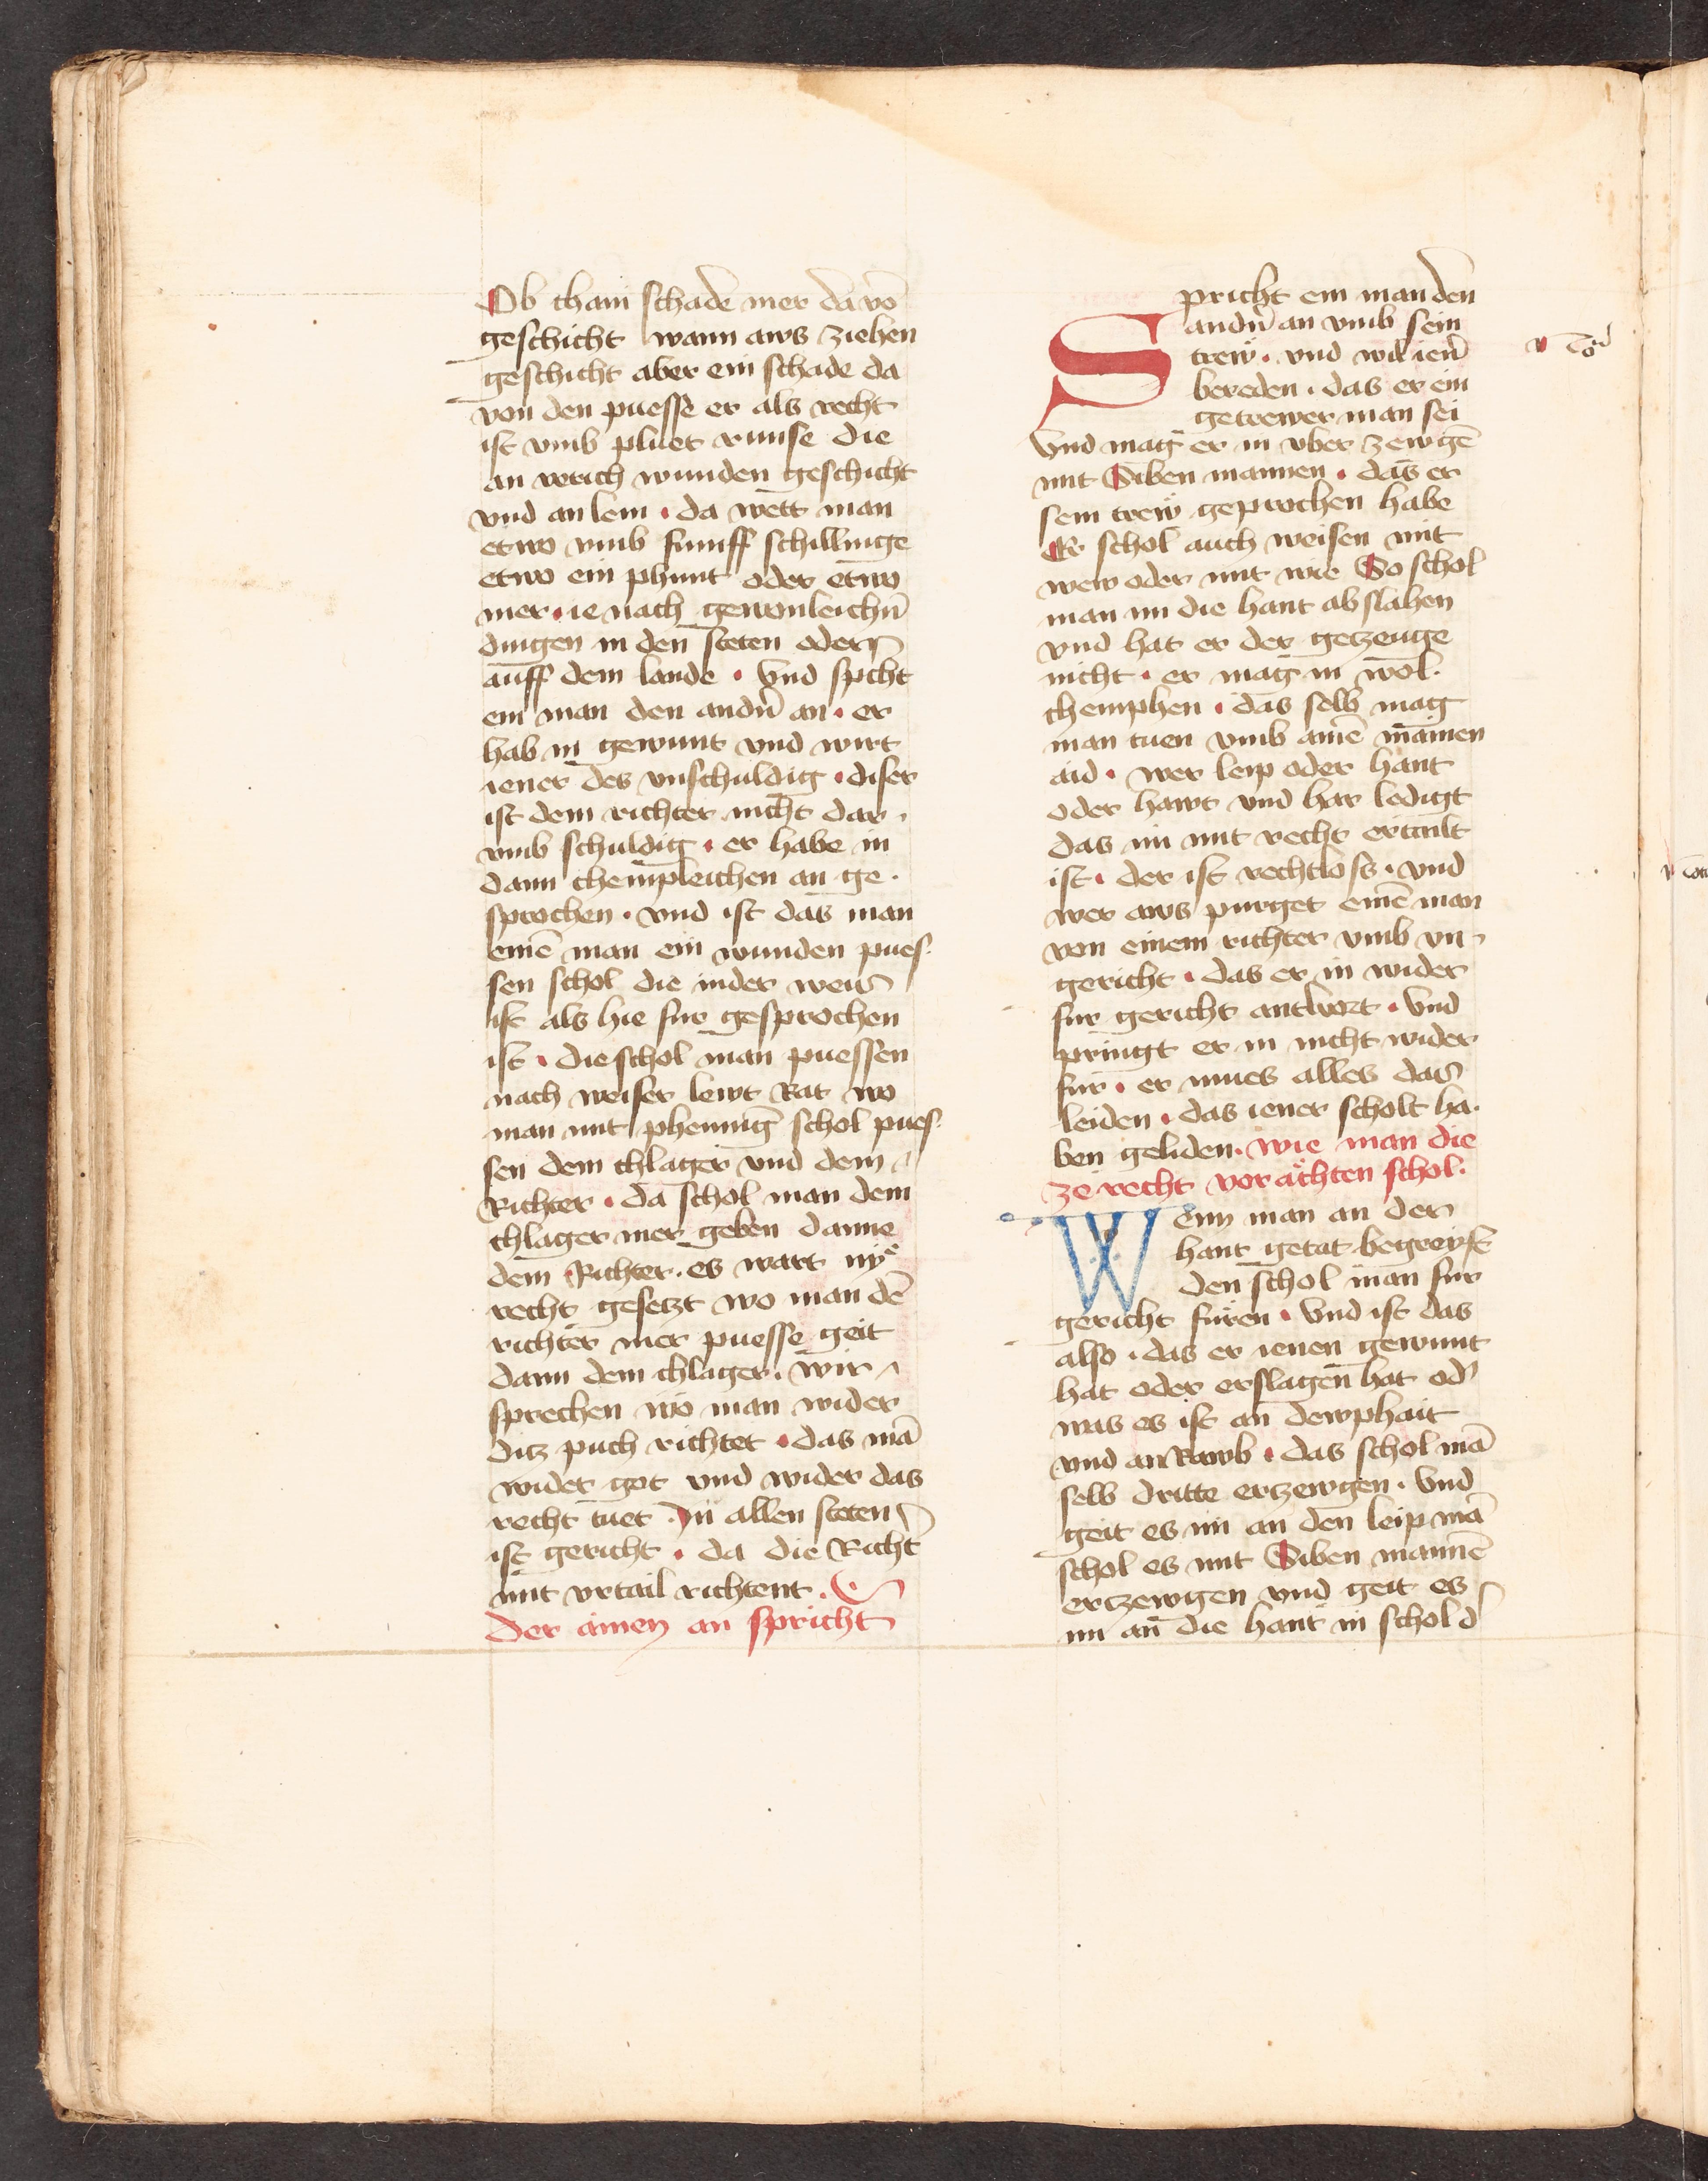 Ob chain schadē mer da vō
geschicht wann aws ziehen
geschicht aber ein schade da
von den puesse er als recht
ist vmb pluet runse die
an verich wunden geschicht
vnd an lem · da wett man
etwo vmb funiff schillinge
etwo ein phunt oder etwo
mer · ie nach gewonleichn̄
dingen in den steten oder
auff dem lande · Vnd spcht
ein man den andn̄ an · er
hab in gewunt vnd wirt
iener des vnschuldig · diser
ist dem richter nicht dar ·
vmb schuldig · er habe in
dann chempleichen an ge ·
sprochen · vnd ist das man
einē man ein wunden pues ·
sen schol die inder weis
ist als hie fur gesprochen
ist · die schol man puessen
nach weiser lewt Rat wo
man mit phennīg schol pues ·
sen dem chlager vnd dem
Richter · da schol man dem
chlager mer geben danne
dem Richter · es wart nye
recht gesetzt wo man dē
richter mer puesse geit
dann dem chlager · wir
sprechen wo man wider
ditz puch richtet · das mā
wider got vnd wider das
recht tuet · In allen steten
ist gericht · da die Richt
mit vrtail richtent ·
Der ainen an spricht
Spricht ein man den
andn̄ an vmb sein
trew · vnd wil ien̄
bereden · das er ein
getrewer man sei
Vnd mag er in vber zewgē
mit Siben mannen · das er
sein trew geprochen habe
Er schol auch weisen mit
wew oder mit wie So schol
man im die hant ab slahen
vnd hat er der getzeuge
nicht · er mag in wol ·
chemphen · das selb mag
man tuen vmb ainē mainen
aid · wer leip oder hant
oder hawt vnd har ledigt
das im mit recht ertailt
ist · der ist rechtloss · vnd
wer aws purget einē man
von einem richter vmb vn ·
gericht · das er in wider
fur gericht antwort · Vnd
pringt er in nicht wider
fur · er mues alles das
leiden · das iener scholt ha ·
ben geliden · wie man die
ze recht vor ächten schol ·
Wenn man an der
hant getat begreyft
den schol man fur
gericht füren · Vnd ist das
also · das er ienen gewunt
hat oder erslagen hat od̄
was es ist an dewphait
vnd an Rawb · das schol mā
selb dritte ertzewgen · Vnd
geit es im an den leip mā
schol es mit Siben mannē
ertzewgen vnd geit es
im an die hant in schol d̄